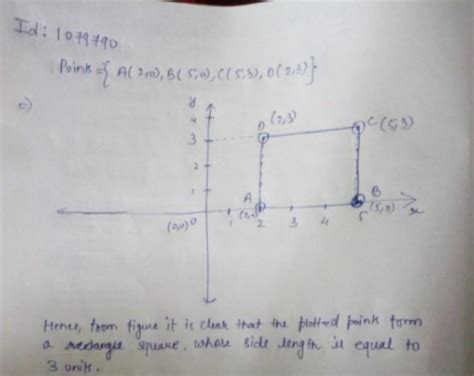 Id: 1079790
Point = { A(2,0), B(5,0), C(5,3), D(2,3)}
y
4
D (2,3)
C(5,3)
3
2
1
A
B
(0,0) 0
1
(2,0)
2
3
4
5
(5,0)
x
Hence, from figure it is clear that the plotted points form
a rectangle square, whose side length is equal to
3 units.